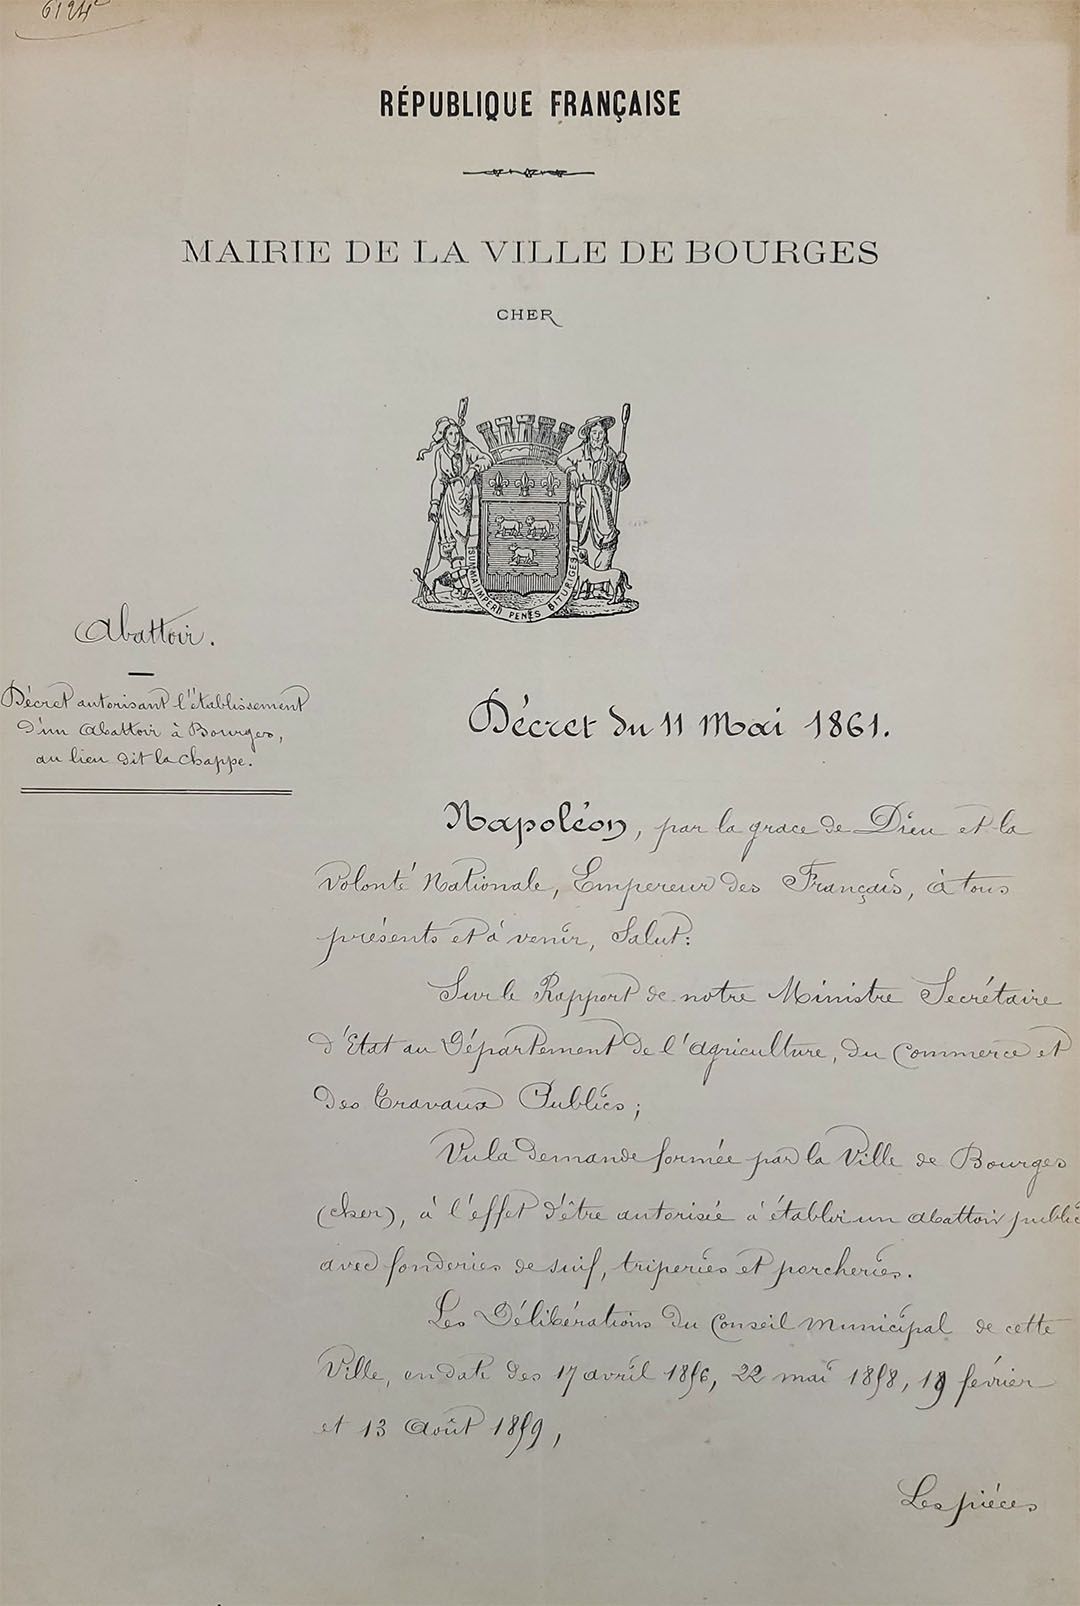 6124
RÉPUBLIQUE FRANÇAISE
MAIRIE DE LA VILLE DE BOURGES
CHER
SUMMA IMPERII PENES BITURIGES
Abattoir.
Décret autorisant l'établissement
d'un Abattoir à Bourges,
au lieu dit la Chappe.
Décret du 11 Mai 1861.
Napoléon, par la grace de Dieu et la
Volonté Nationale, Empereur des Français, à tous
présents et à venir, Salut:
Sur le Rapport de notre Ministre Secrétaire
d'Etat au Département de l'Agriculture, du Commerce et
des Travaux Publics;
Vu la demande formée par la Ville de Bourges
(Cher), à l'effet d'être autorisée à établir un abattoir public
avec fonderies de suif, triperies et porcheries.
Les Délibérations du Conseil Municipal de cette
Ville, en date des 17 avril 1856, 22 mai 1858, 19 février
et 13 Août 1859,
Les pièces